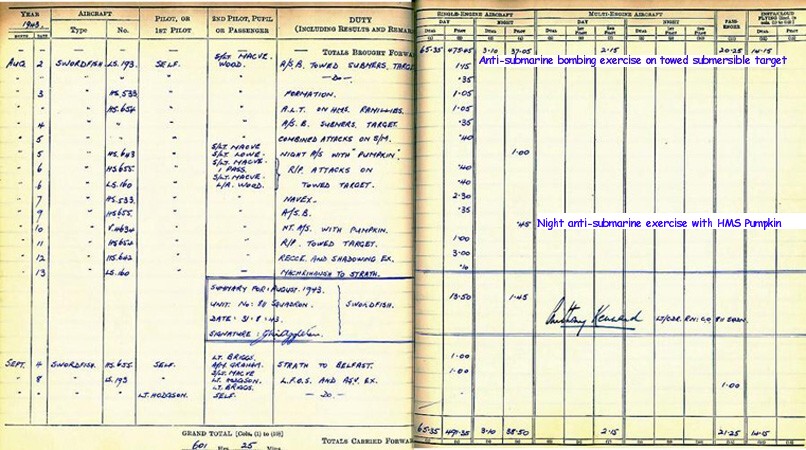 YEAR AIRCRAFT PILOT, OR 2ND PILOT, PUPIL DUTY
1943. Type No. 1ST PILOT OR PASSENGER (INCLUDING RESULTS AND REMAR
MONTH DATE
SINGLE-ENGINE AIRCRAFT MULTI-ENGINE AIRCRAFT PASS-ENGER INSTR/CLOUD FLYING
DAY NIGHT DAY NIGHT
DUAL PILOT DUAL PILOT DUAL 1ST PILOT 2ND PILOT DUAL 1ST PILOT 2ND PILOT DUAL PILOT
— — — — — — TOTALS BROUGHT FORWAR 65·35 475·05 3·10 37·05 2·15 20·25 14·15
AUG 2 SWORDFISH LS.193. SELF. S/LT MACVE. WOOD. A/S.B. TOWED SUBMERS. TARGET 1·15
Anti-submarine bombing exercise on towed submersible target
" " " " — Do — ·35
3 " HS.533 " FORMATION. 1·05
" HS.654 " A.L.T. ON HMS. RAMILLIES. 1·05
" 4 " " " A/S.B. SUBMERS. TARGET. ·35
" 5 " " " COMBINED ATTACKS ON S/M. ·40
" 5 " HS.643 " S/LT MACVE S/LT LOWE. NIGHT A/S WITH "PUMPKIN". 1·00
" 6 " HS655. " S/LT MACVE. 1 PASS. R/P. ATTACKS ON ·40
" 6 " LS.160 " S/LT. MACVE. L/A. WOOD. TOWED TARGET. ·40
" 7 " HS.533. " NAVEX. 2·30
" 9 " HS655. " A/S.B. ·35
" 10 " " NT. A/S. WITH PUMPKIN. ·45
Night anti-submarine exercise with HMS Pumpkin
" 11 " HS654 " R/P. TOWED TARGET. 1·00
" 12 " HS.642 " RECCE. AND SHADOWING EX. 3·00
" 13 " LS.160 " MACHRIHANISH TO STRATH. ·10
SUMMARY FOR: AUGUST. 1943.
UNIT: No: SQUADRON. SWORDFISH. 13·50 1·45
DATE: 31·8·43. LT/CDR. R.N: C.O SQDN.
SIGNATURE:
SEPT. 4 SWORDFISH. HS.655. SELF. LT. BRIGGS. GRAHAM. STRATH TO BELFAST. 1·00
" 8 " LS.193 " S/LT MACVE LT. HODGSON. AND ASV. EX. 1·00
" " " LT. HODGSON. LT. BRIGGS. SELF. — Do — 1·00
GRAND TOTAL [Cols. (1) to (10)] TOTALS CARRIED FORWAR 65·35 491·35 3·10 38·50 2·15 21·25 14·15
601 Hrs. 25 Mins.